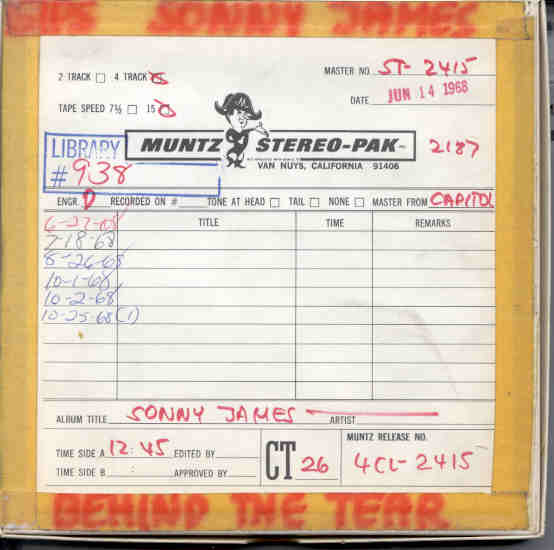 SONNY JAMES
2 TRACK 4 TRACK
MASTER NO. ST-2415
TAPE SPEED 7½ 15
DATE JUN 14 1968
LIBRARY
# 938
MUNTZ STEREO-PAK
2187
VAN NUYS, CALIFORNIA 91406
ENGR. RECORDED ON # TONE AT HEAD TAIL NONE MASTER FROM CAPITOL
TITLE TIME REMARKS
6-27-68
7-18-68
8-26-68
10-1-68
10-2-68
10-25-68 (1)
ALBUM TITLE SONNY JAMES ARTIST
TIME SIDE A 12:45 EDITED BY
TIME SIDE B : APPROVED BY
CT 26
MUNTZ RELEASE NO.
4CL-2415
BEHIND THE TEAR